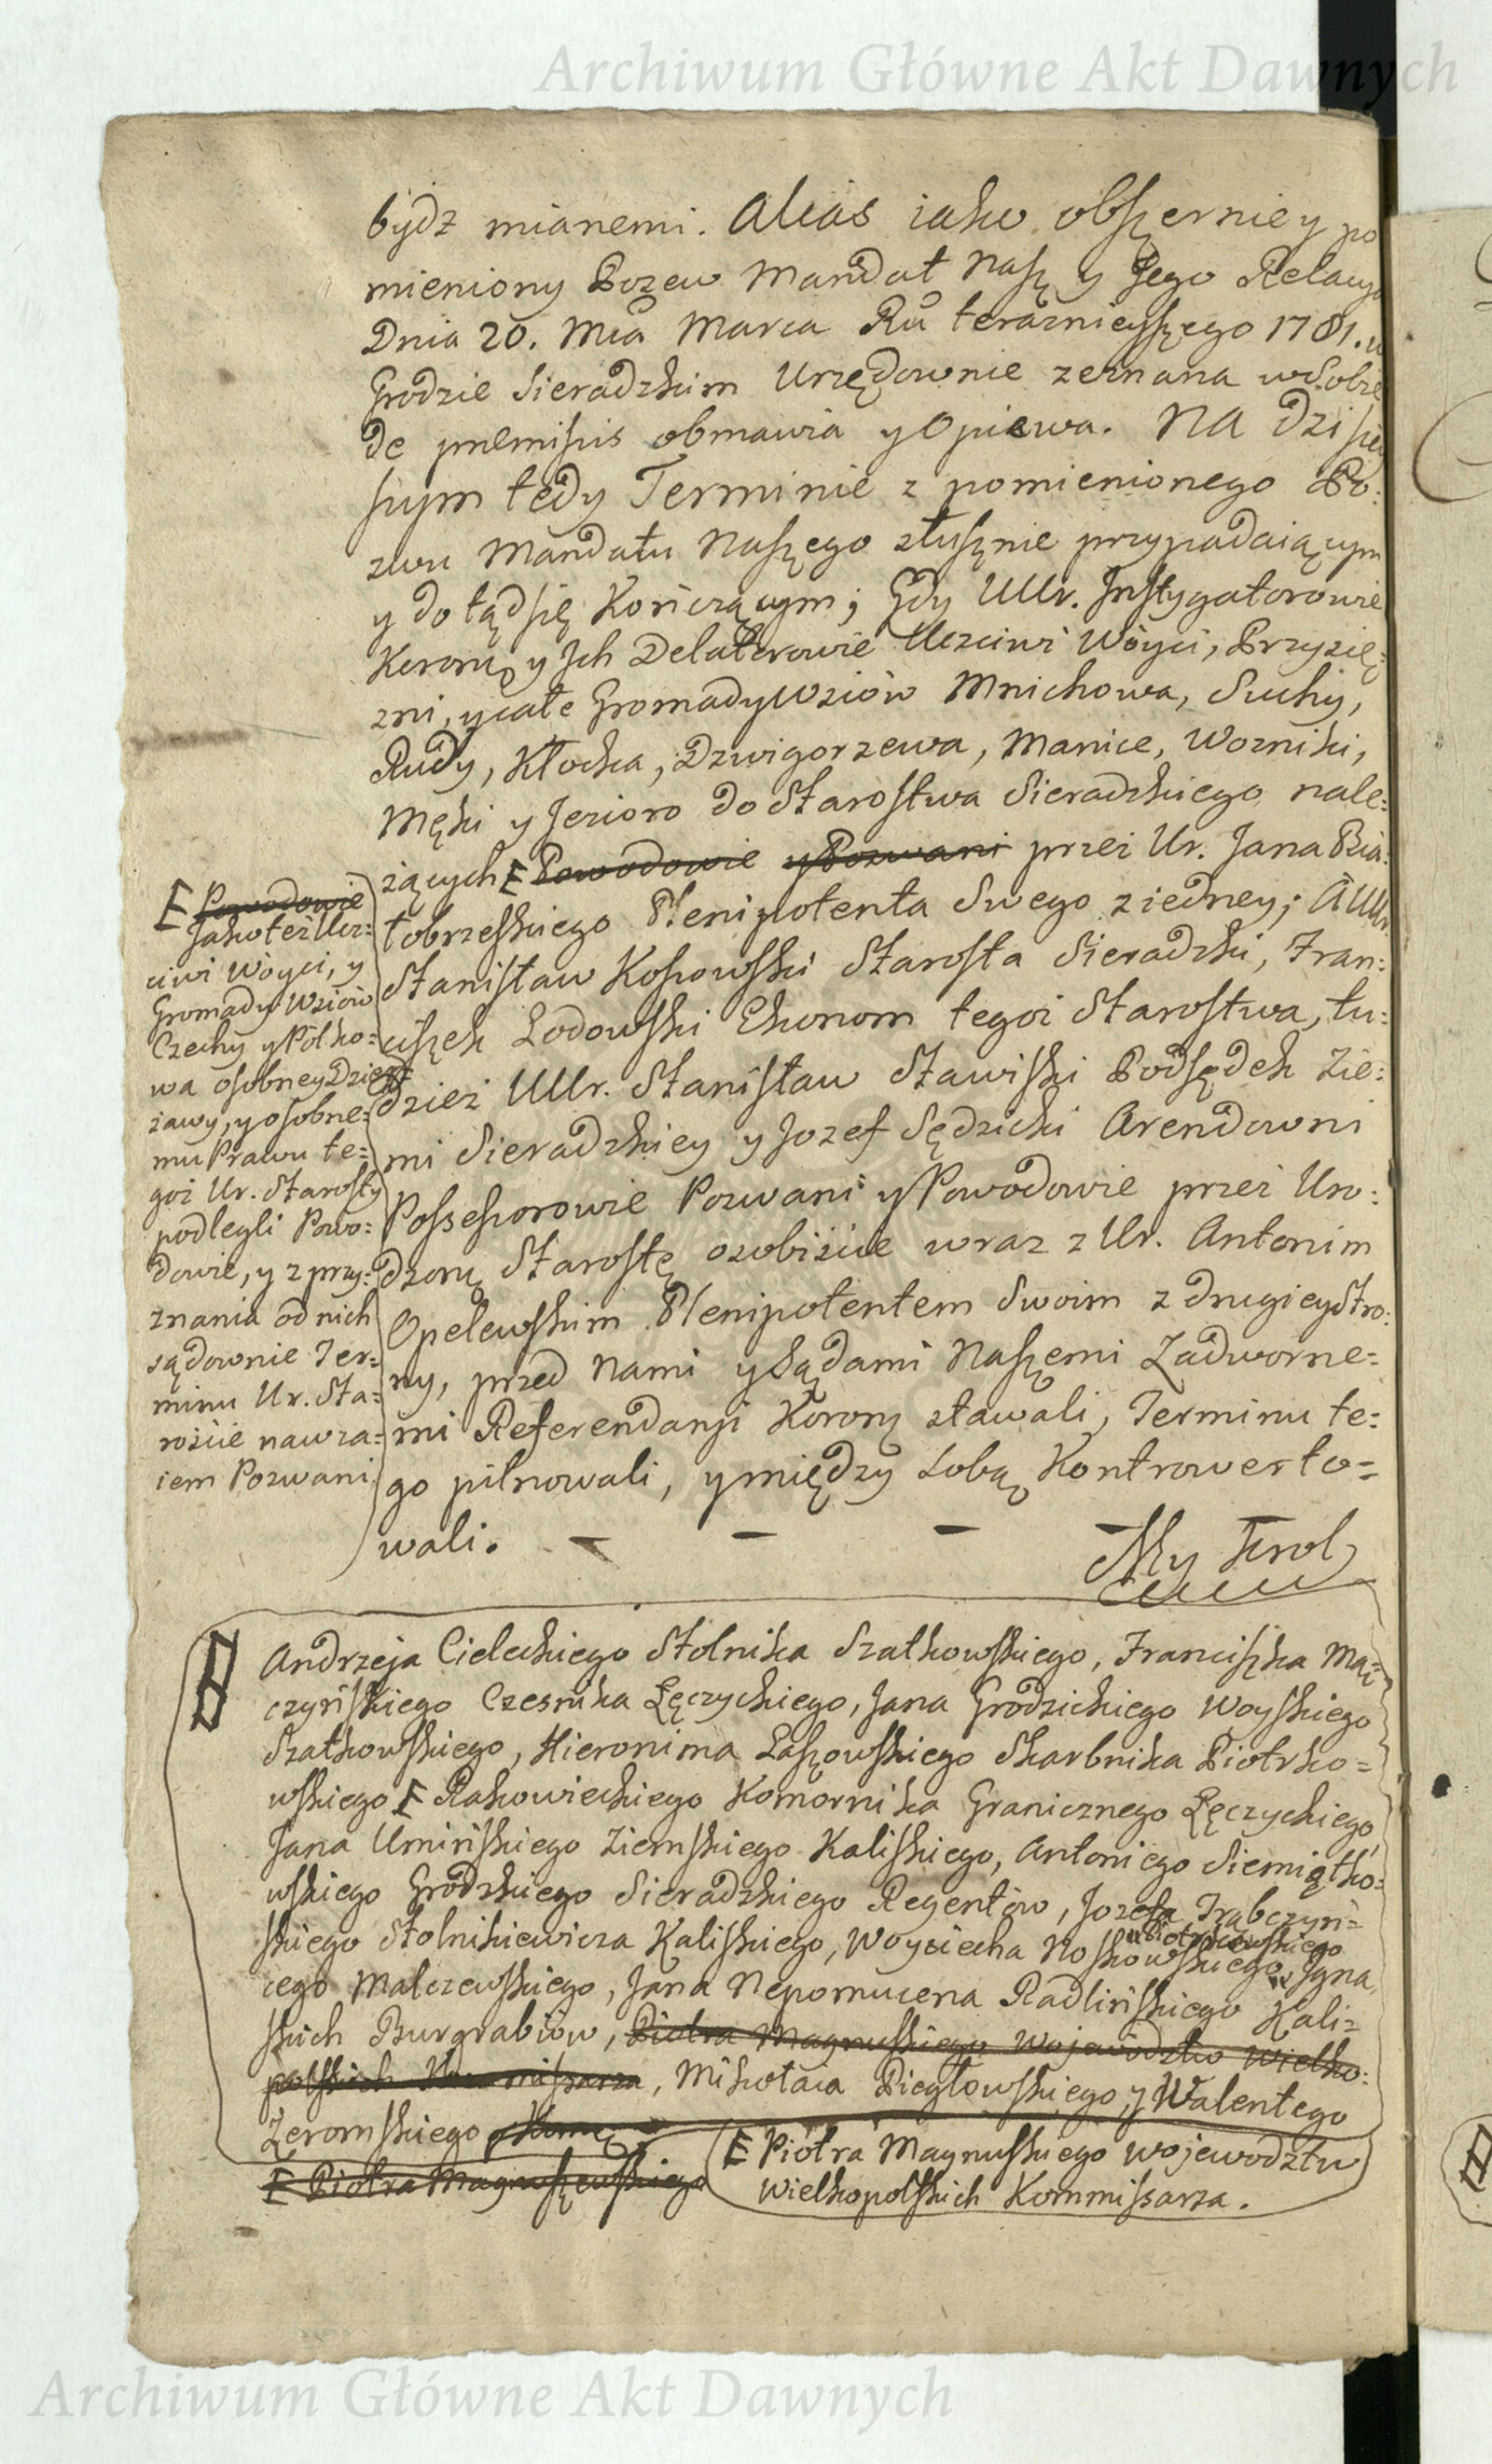 Archiwum Główne Akt Dawnych
bydz mianemi. Alias iako obszerniey po
mieniony Pozew Mandat Nasz y Jego Relacya
Dnia 20. Mca Marca Ru teraznieyszego 1781. w
Grodzie Sieradzkim Urzędownie zeznana w Sobie
de præmissis obmawia y Opiewa. Na Dzisiey
szym tedy Terminie z pomienionego Po:
zwu Mandatu Naszego słusznie przypadaiącym
y dotąd się Kończącym; Gdy UUr. Instygatorowie
Koronę y Ich Delatorowie Uczciwi Woyci, Przysię:
żni, y całe Gromady Wsiów Mnichowa, Suchy,
Rudy, Kłocka, Dzwigorzewa, Manice, Wozniki,
Męki y Jezioro do Starostwa Sieradzkiego nale:
żących E Powodowie y Pozwani przez Ur. Jana Bia:
łobrzeskiego Plenipotenta Swego z iedney; A UUr.
Stanisław Kossowski Starosta Sieradzki, Fran:
ciszek Lodowski Ekonom tegoż Starostwa, tu:
dzież UUr. Stanisław Stawiski Podsędek Zie:
mi Sieradzkiey y Jozef Sędzicki Arendowni
Possessorowie Pozwani y Powodowie przez Uro:
dzonę Starostę osobiście wraz z Ur. Antonim
Opelewskim Plenipotentem Swoim z drugiey Stro:
ny, przed Nami y Sądami Naszemi Zadworne=
mi Referendarji Korony stawali, Terminu te=
go pilnowali, y między Sobą Kontrowerto=
wali.
E Powodowie
Jako też Ucz:
ciwi Woyci, y
Gromady Wsiów
Czechy y Półko=
wa osobney Dzier
żawy, y osobne=
mu Prawu te=
goż Ur. Starosty
podlegli Powo:
dowie, y z przy:
znania od nich
sądownie Ter=
minu Ur. Sta=
roście nawza=
iem Pozwani.
My Krol
Andrzeja Cieleckiego Stolnika Szatkowskiego, Franciszka Mą=
czyńskiego Czesnika Łęczyckiego, Jana Grodzickiego Woyskiego
Szatkowskiego, Hieronima Laszowskiego Skarbnika Piotrko=
wskiego E Rakowieckiego Komornika Granicznego Łęczyckiego,
Jana Umińskiego Ziemskiego Kaliskiego, Antoniego Siemiątko:
wskiego Grodzkiego Sieradzkiego Regentów, Jozefa Trąbczyń=
skiego Stolnikiewicza Kaliskiego, Woyciecha Noskowskiego, Igna
cego Malczewskiego, Jana Nepomucena Radlińskiego Kali=
skich Burgrabiów, Piotra Magnuskiego Wojewodztw Wielko:
polskich Kommissarza, Mikołaia Piegłowskiego, y Walentego
Żeromskiego
E Piotra Magnuszewskiego
E Piotra Magnuskiego Wojewodztw
Wielkopolskich Kommissarza.
Archiwum Główne Akt Dawnych